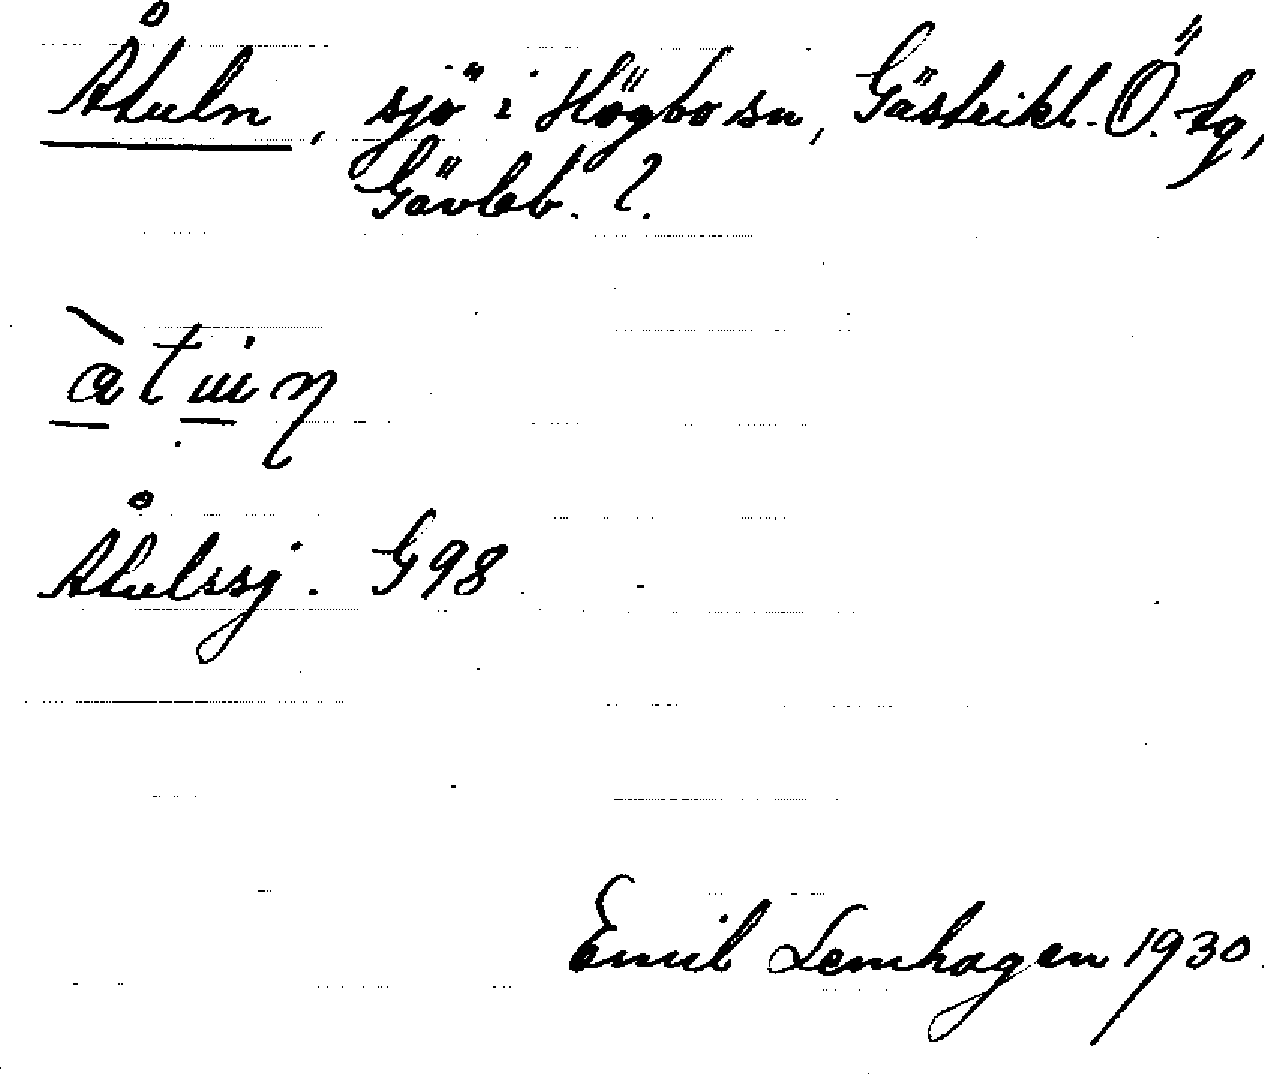 Åtuln, sjö i Högbo sn, Gästrikl. Ö. tg,
Gävleb. l.
Åtulssj. G98
Emil Lemhagen 1930.